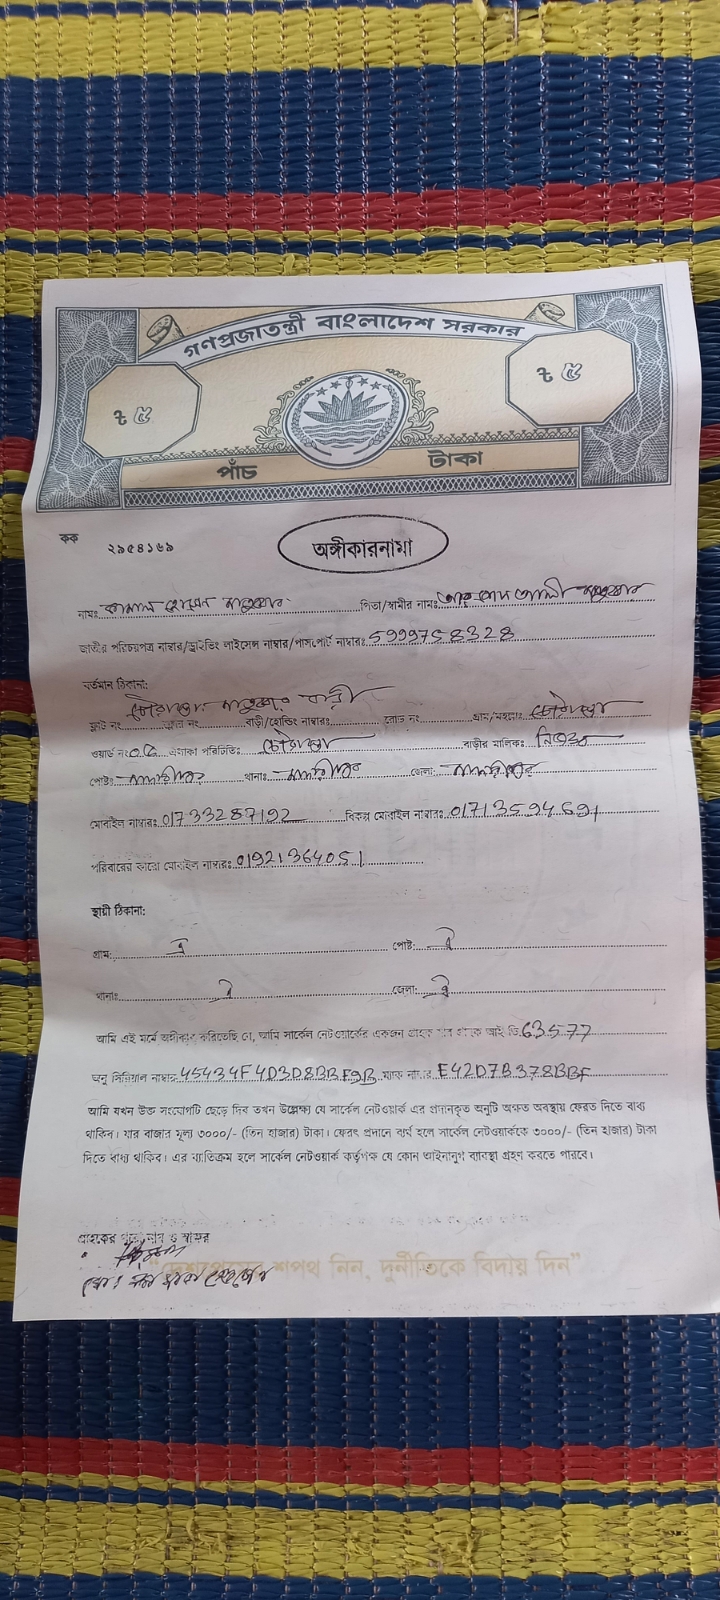 গণপ্রজাতন্ত্রী বাংলাদেশ সরকার
৳ ৫ ৳ ৫
পাঁচ টাকা
কক ২৯৫৪১৬৯
অঙ্গীকারনামা
নামঃ কামাল হোসেন পিতা/স্বামীর নামঃ
জাতীয় পরিচয়পত্র নাম্বার/ড্রাইভিং লাইসেন্স নাম্বার/পাসপোর্ট নাম্বারঃ 5999758328
বর্তমান ঠিকানা:
ফ্ল্যাট নং বাড়ী/হোল্ডিং নাম্বারঃ রোড নং গ্রাম/মহল্লাঃ
ওয়ার্ড নংঃ ০৫ এলাকা পরিচিতিঃ বাড়ীর মালিকঃ নিজ
পোষ্টঃ মাদারীপুর থানাঃ মাদারীপুর জেলাঃ মাদারীপুর
মোবাইল নাম্বারঃ 01733287192 বিকল্প মোবাইল নাম্বারঃ 01713594691
পরিবারের কারো মোবাইল নাম্বারঃ 01921364051
স্থায়ী ঠিকানা:
গ্রাম: ঐ পোষ্ট: ঐ
থানাঃ ঐ জেলা: ঐ
আমি এই মর্মে অঙ্গীকার করিতেছি যে, আমি সার্কেল নেটওয়ার্কের একজন গ্রাহক যার গ্রাহক আই ডি 63577
অনু সিরিয়াল নাম্বারঃ 45434F4D3D8BBF9B ম্যাক E42D7B378BBF
আমি যখন উক্ত সংযোগটি ছেড়ে দিব তখন উল্লেখ্য যে সার্কেল নেটওয়ার্ক এর প্রদানকৃত অনুটি অক্ষত অবস্থায় ফেরত দিতে বাধ্য
থাকিব। যার বাজার মূল্য ৩০০০/- (তিন হাজার) টাকা। ফেরৎ প্রদানে ব্যর্থ হলে সার্কেল নেটওয়ার্ককে ৩০০০/- (তিন হাজার) টাকা
দিতে বাধ্য থাকিব। এর ব্যতিক্রম হলে সার্কেল নেটওয়ার্ক কর্তৃপক্ষ যে কোন আইনানুগ ব্যবস্থা গ্রহণ করতে পারবে।
গ্রাহকের পুরো নাম ও স্বাক্ষর
"দেশপ্রেমের শপথ নিন, দুর্নীতিকে বিদায় দিন"